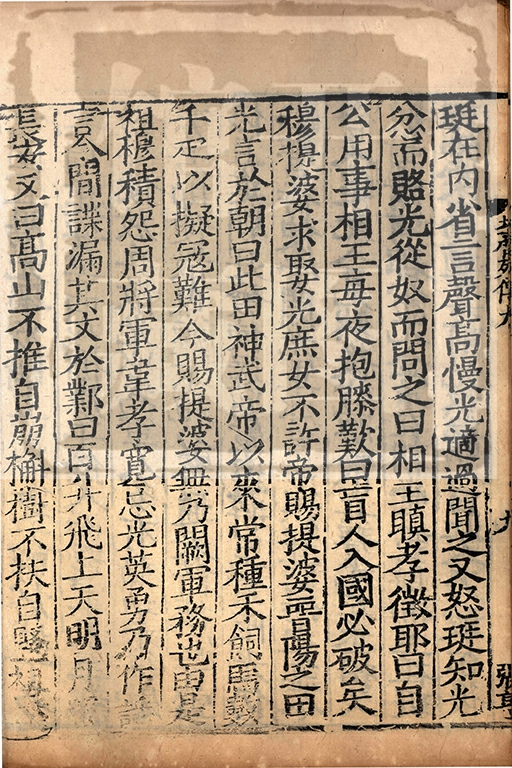 珽在内省言聲髙慢光適過聞之又怒珽知光
忿而賂光從奴而問之曰相王瞋孝徵耶曰自
公用事相王每夜抱膝歎曰盲人入國必破矣
穆提婆求娶光庶女不許帝賜提婆晋陽之田
光言於朝曰此田神武帝以來常種禾飼馬數
千疋以擬寇難今賜提婆無乃闕軍務也由是
祖穆積怨周將軍韋孝寛忌光英勇乃作謠
言令間諜漏其文於鄴曰百升飛上天明月照
長安又曰髙山不推自崩槲樹不扶自竪祖